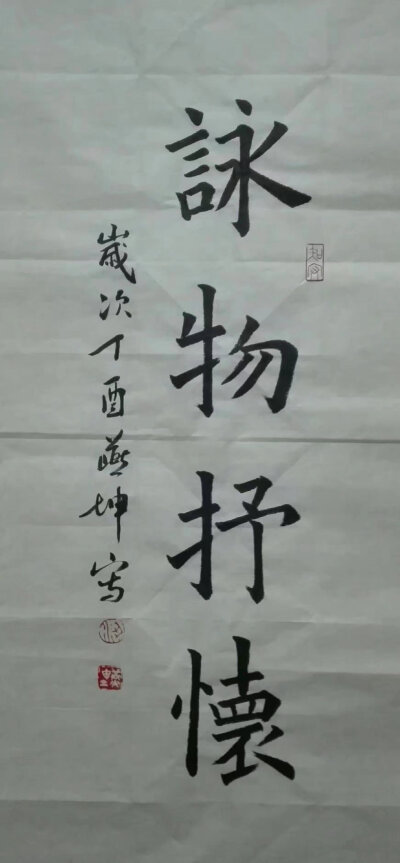 詠物抒懷
歲次丁酉燕坤寫